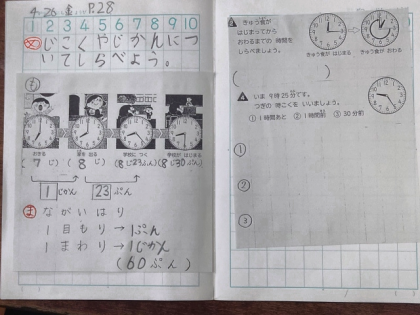 4.26 金 P.28
1 2 3 4 5 6 7 8 9 10
め じこくやじかんにつ
いてしらべよう。
も
おきる 家を出る 学校につく 学校が はじまる
(7じ) (8じ) (8じ23ぷん) (8じ30ぷん)
1 じかん 23 ぷん
ま ながいはり
1目もり→1ぷん
1まわり→1じかん
(60ぷん)
きゅう食が
はじまってから
おわるまでの 時間を
しらべましょう。
きゅう食が はじまる きゅう食が おわる
( )
いま 9時25分です。
つぎの 時こくを いいましょう。
① 1時間あと ② 1時間前 ③ 30分前
①
②
③